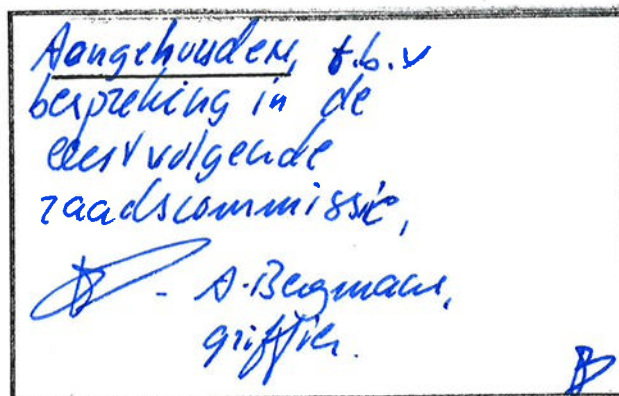 Aangehouden, t.b.v
bespreking in de
eerstvolgende
raadscommissie,
- A. Bergmans,
griffier.